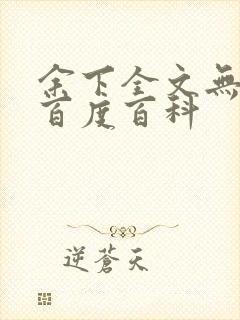 余下全文無
百度百科
逆蒼天